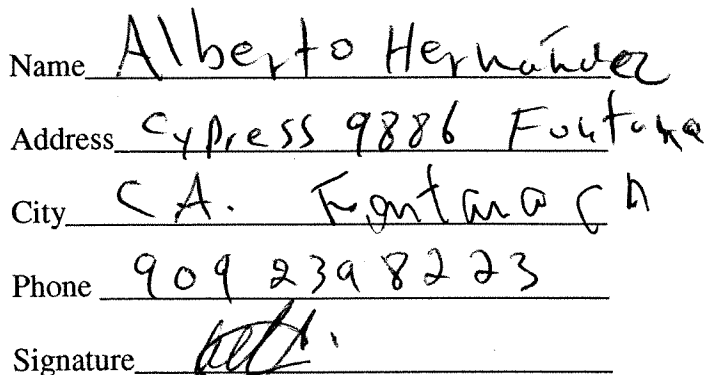 Name Alberto Hernández
Address Cypress 9886 Fontana
City CA. Fontana CA
Phone 909 2398223
Signature